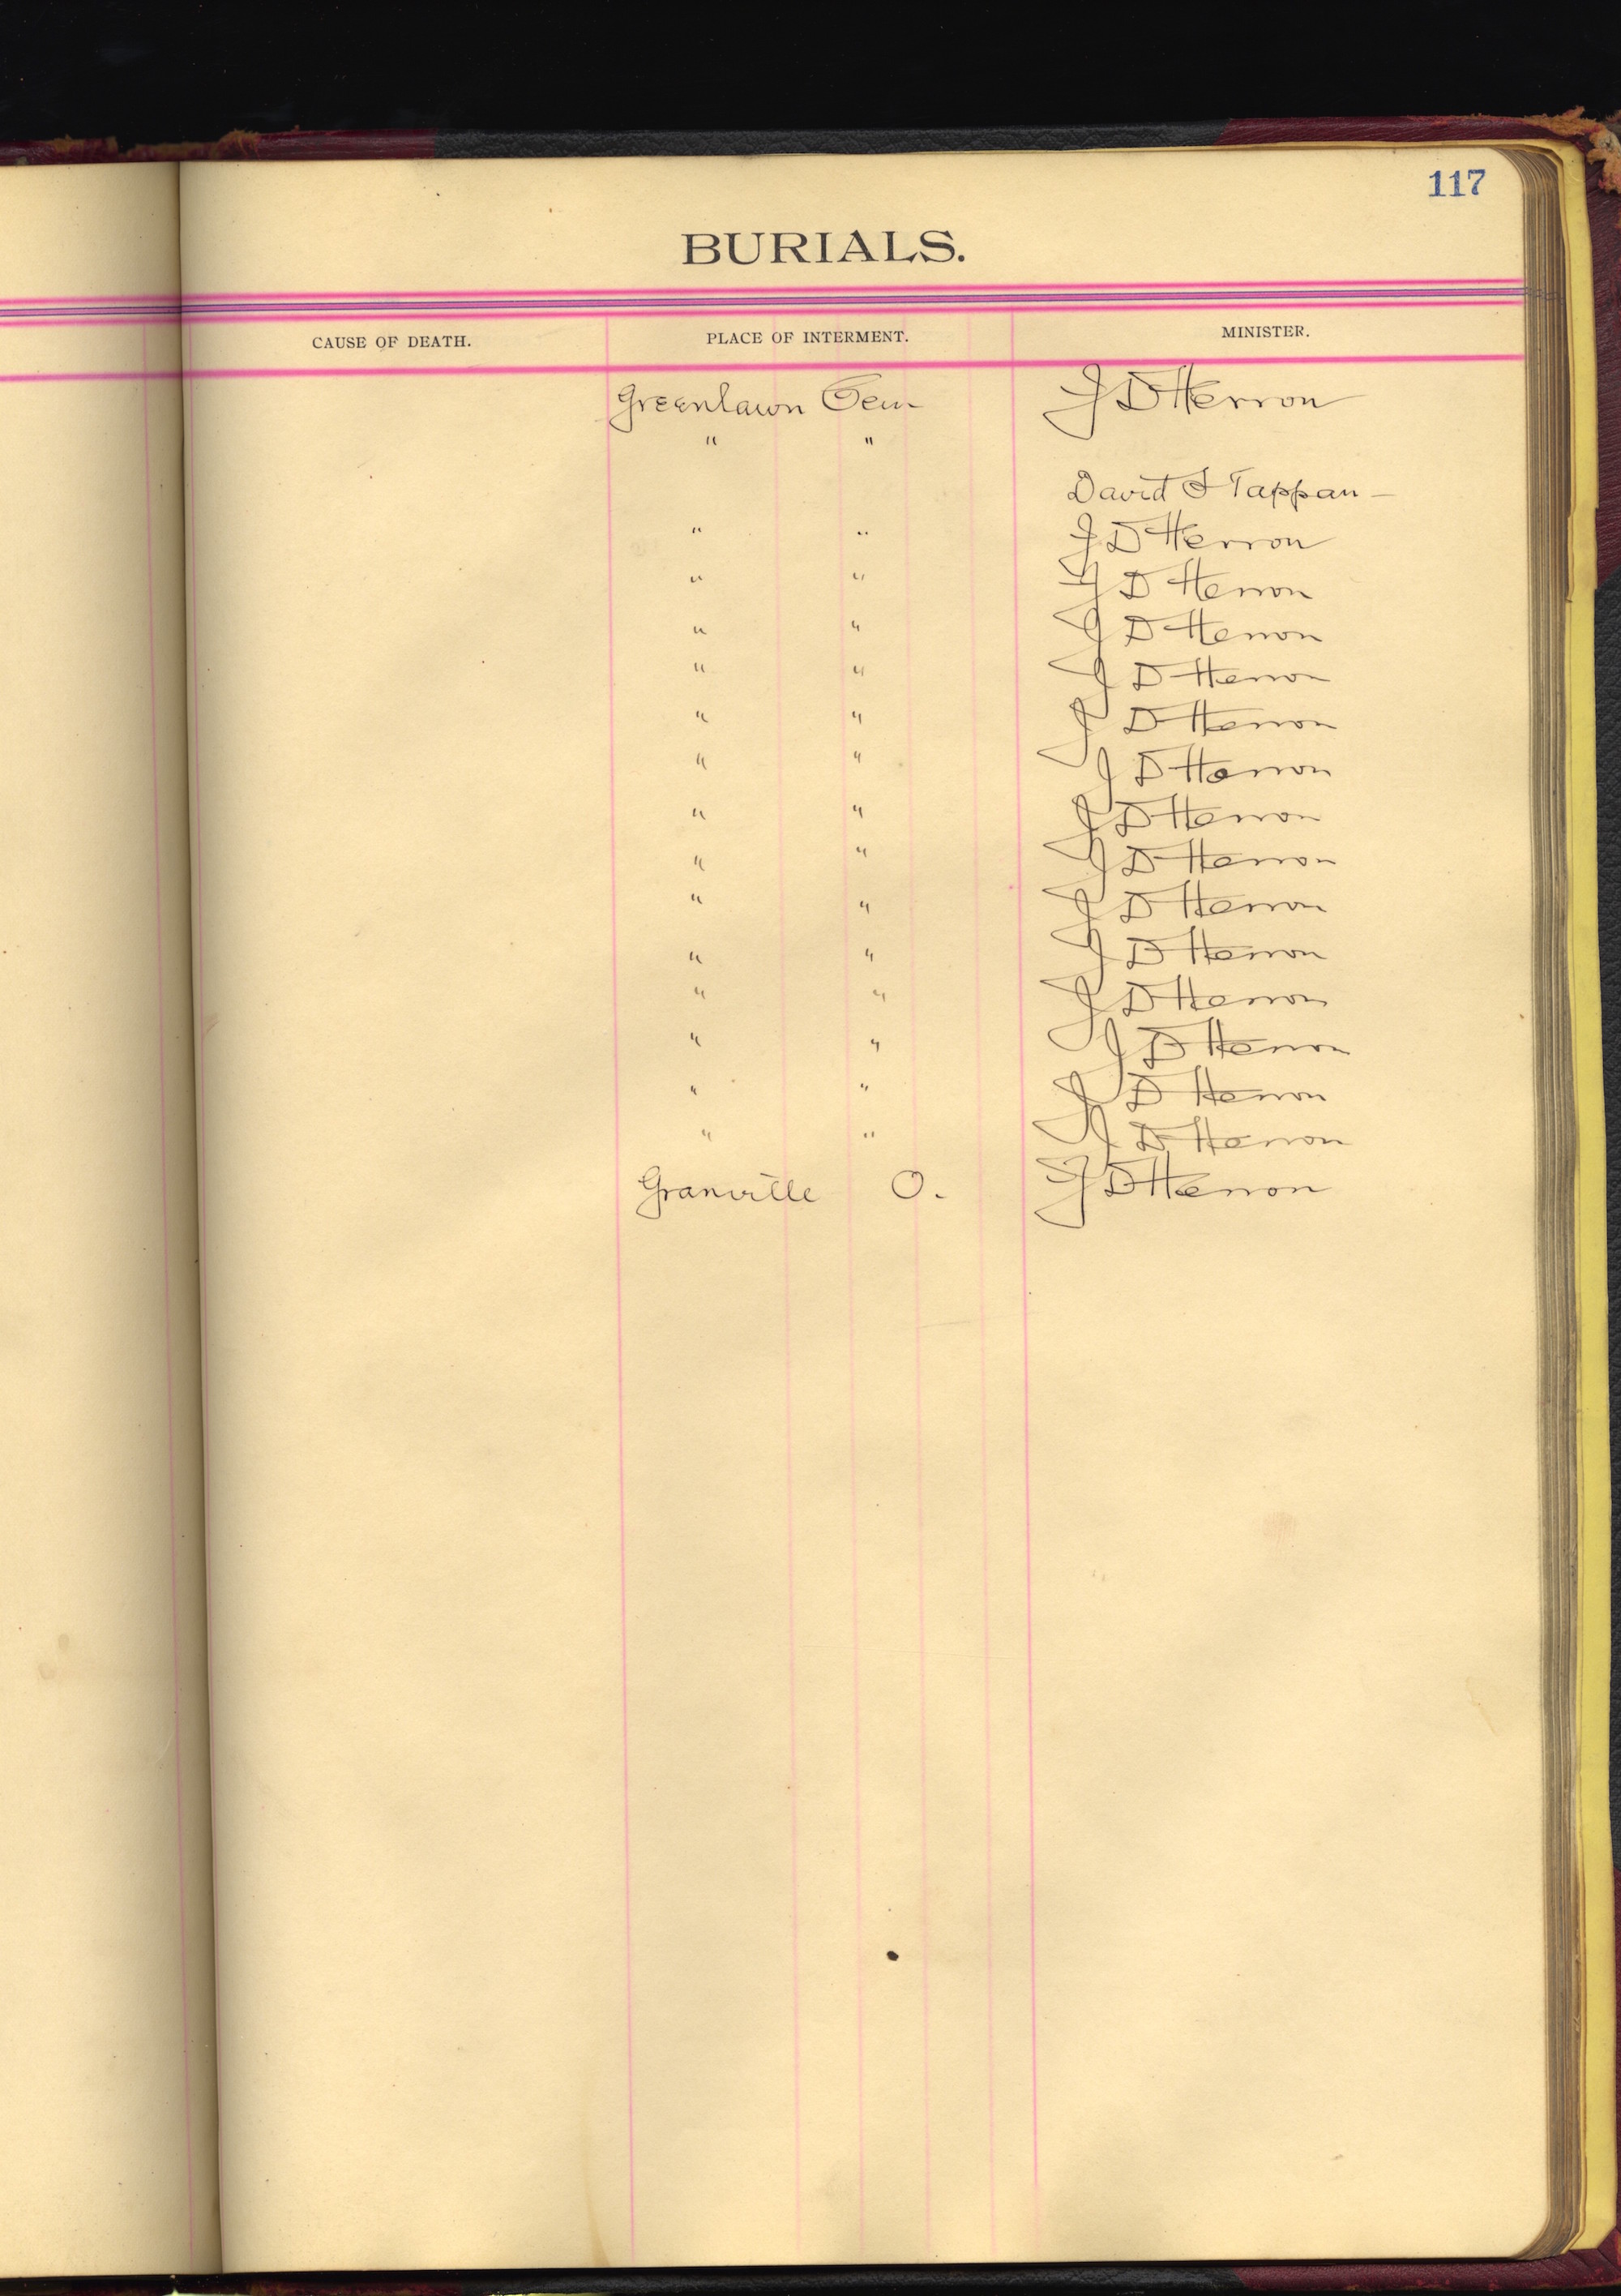 117
BURIALS.
CAUSE OF DEATH. PLACE OF INTERMENT. MINISTER.
Greenlawn Cem J D Herron
" "
David S Tappan -
" " J D Herron
" " J D Herron
" " J D Herron
" " J D Herron
" " J D Herron
" " J D Herron
" " J D Herron
" " J D Herron
" " J D Herron
" " J D Herron
" " J D Herron
" " J D Herron
" " J D Herron
" " J D Herron
Granville O. J D Herron